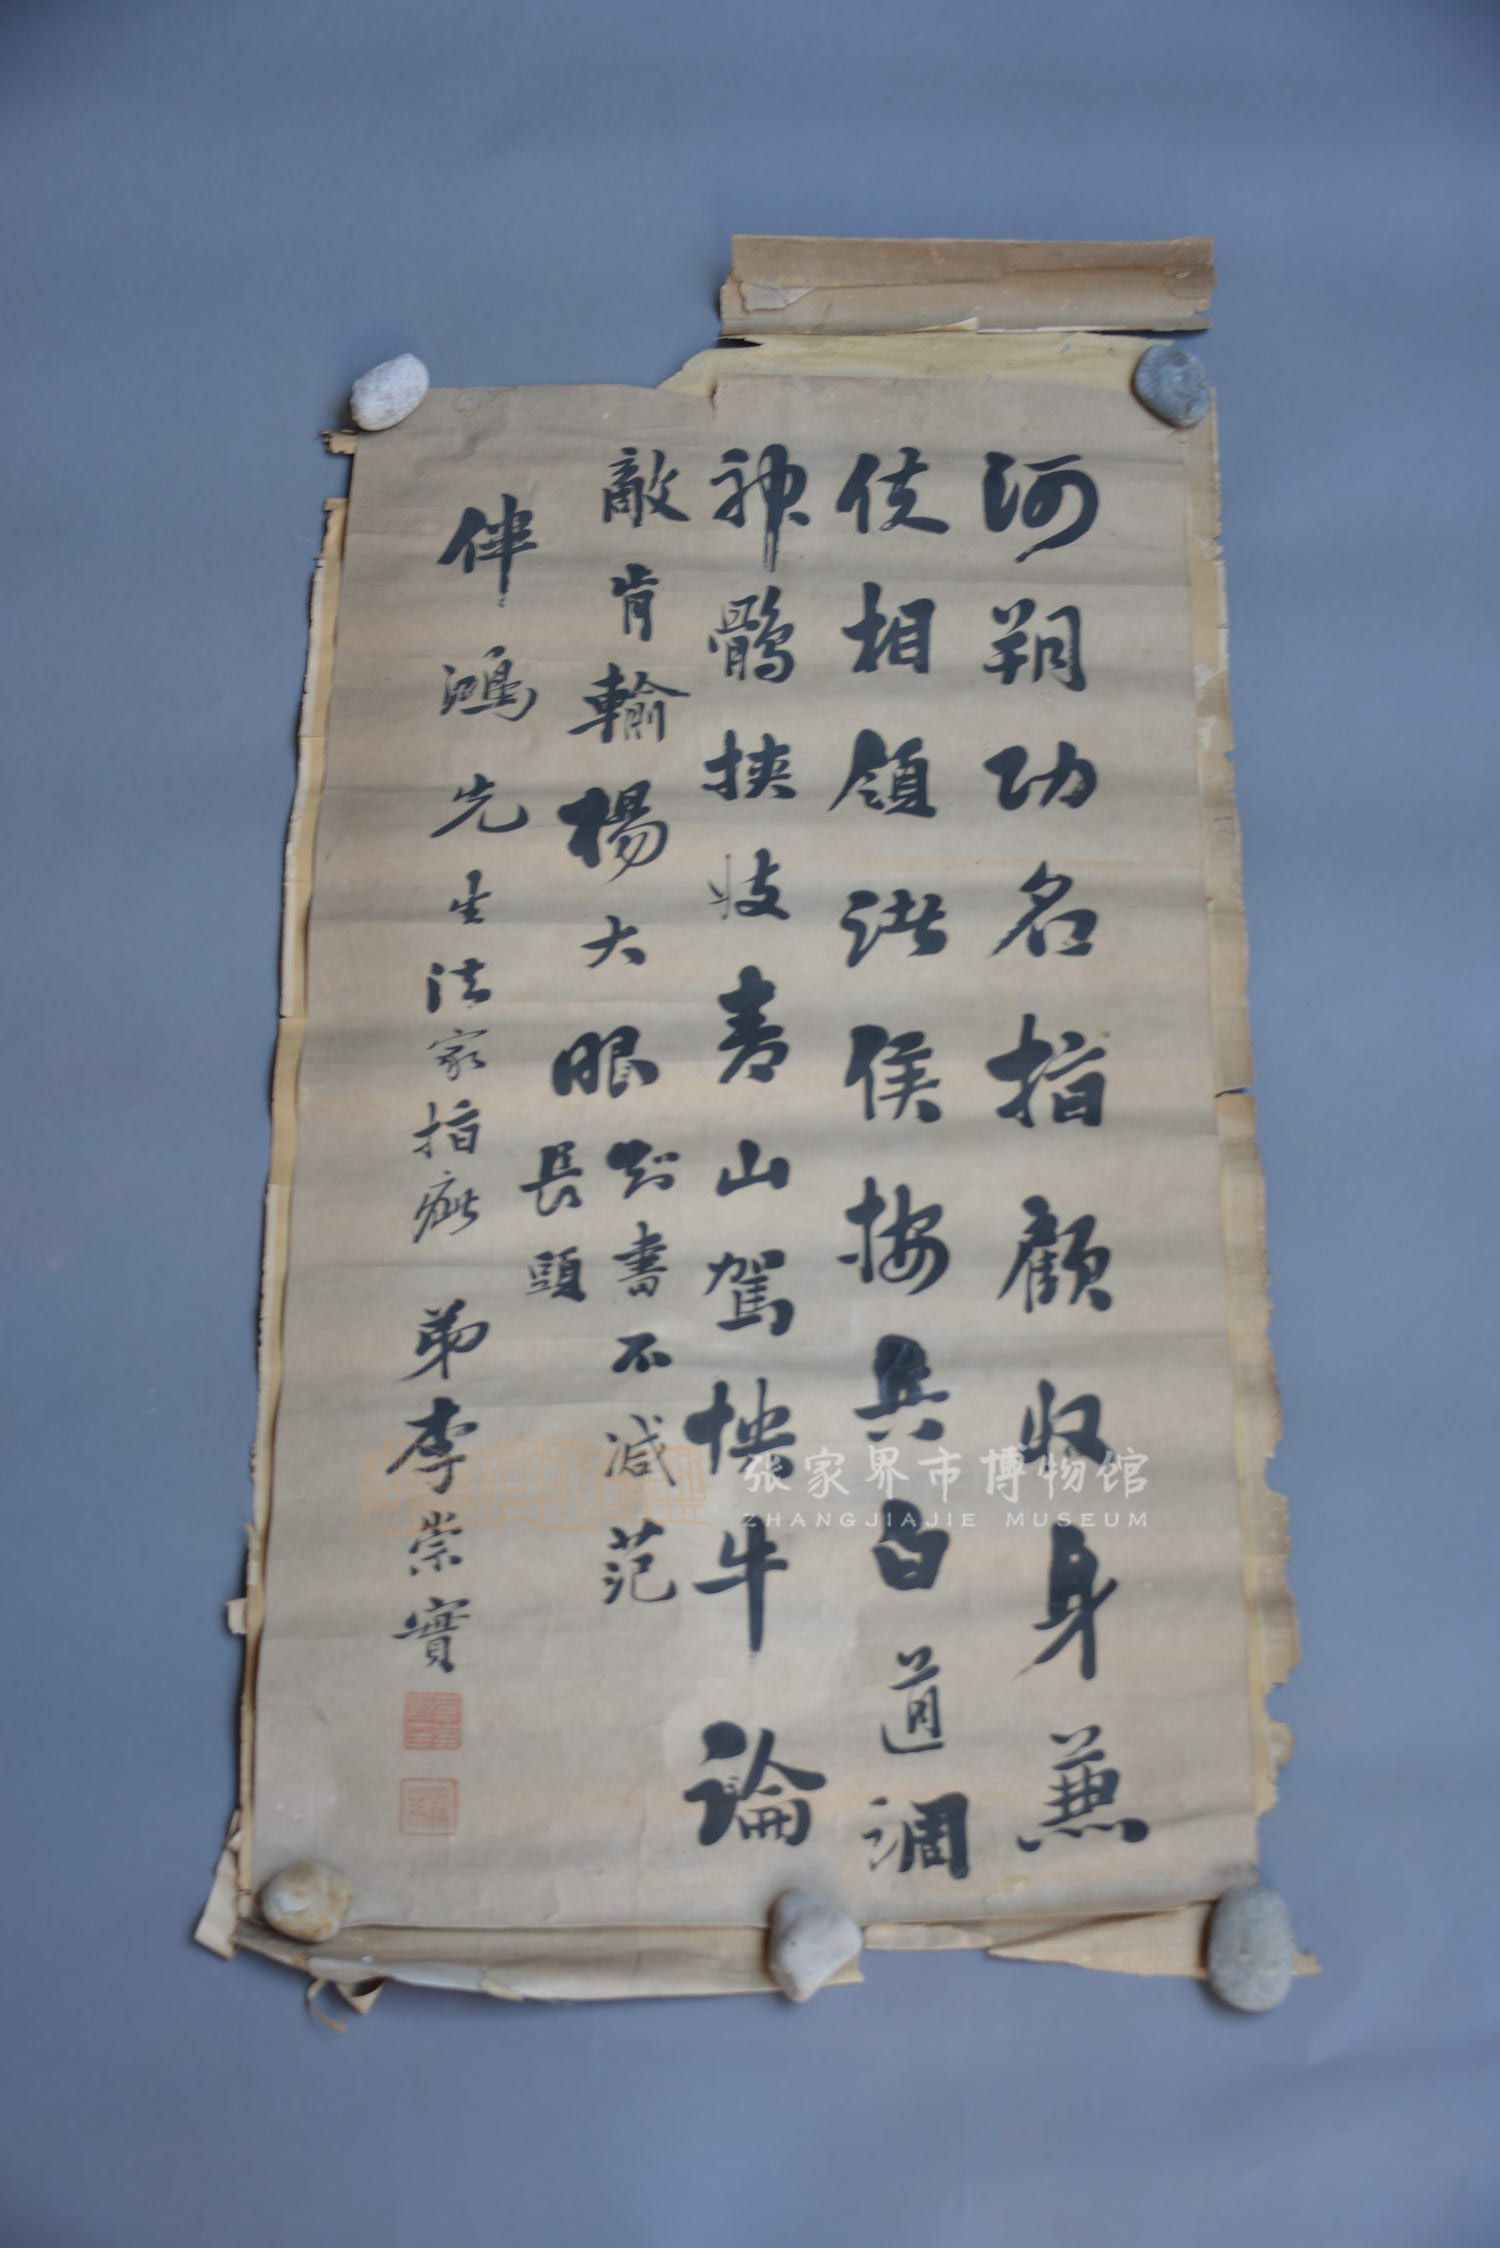 河朔功名指顧收身兼
伎相領諸侯按兵白道調
神鶻挾妓青山駕快牛論
敵肯輸楊大眼書不減范
長頭
伴鴻先生法家指疵 弟李崇實
张家界市博物馆
ZHANGJIAJIE MUSEUM